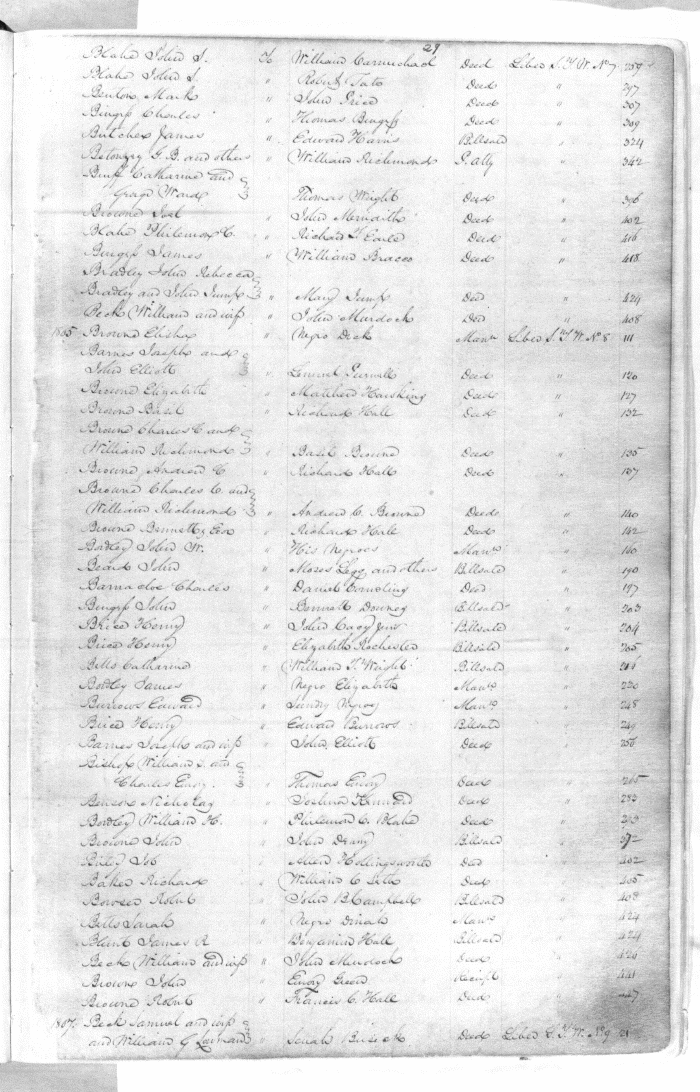 29
Blake John S. To William Carmichael Deed Liber S.T.W. No 7 259
Blake John S. " Robert Tate Deed " 297
Benton Mark " John Price Deed " 307
Charles " Thomas Deed " 309
Butcher James " Edward Harris Billsale " 324
G. B. and others " William Richmond P. atty " 342
Catharine and
Ward " Thomas Wright Deed "
Browne Joel " John Meredith Deed " 402
Blake Philemon C. " Richard T. Earle Deed " 416
James " William Bracco Deed " 418
Bradley John Rebecca
Bradley and John Jump " Mary Jump Deed " 424
Beck William and wife " John Murdock Deed " 408
1805 Browne " Negro Dick Manu Liber S.T.W. No 8 111
Barnes Joseph and
John Elliott " Lemuel Deed " 120
Browne Elizabeth " Deed " 127
Browne Basil " Richard Hall Deed " 132
Browne Charles C. and
William Richmond " Basil Browne Deed " 135
Browne Andrew C " Richard Hall Deed " 137
Browne Charles C. and
William Richmond " Andrew C. Browne Deed " 140
Browne Bennett " Richard Hall Deed " 142
Bordley John W. " His Negroes Manu " 160
Beard John " Moses Legg and others Billsale " 190
Charles " Daniel Deed " 197
John " Bennett Downey Billsale " 203
Brice Henry " John Billsale " 204
Brice Henry " Elizabeth Rochester Billsale " 205
Betts Catharine " William T. Wright Billsale "
Bordley James " Negro Elizabeth Manu " 220
Burrows Edward " Sundry Negroes Manu " 248
Brice Henry " Edward Burrows Billsale " 249
Barnes Joseph and wife " John Elliott Deed " 256
Bishop William S. and
Charles Emory " Thomas Emory Deed " 265
Nicholas " Joshua Kennard Deed " 283
Bordley William H. " Philemon C. Blake Deed " 293
Browne John " John Billsale "
Job " Hollingsworth Deed " 402
Baker Richard " William C. Deed " 405
Bowser Robert " John B. Campbell Billsale " 408
Betts Sarah " Negro Dinah Manu " 424
Blunt James R " Benjamin Hall Billsale " 424
Beck William and wife " John Murdock Deed " 426
Browne John " Emory Green Receipt " 441
Browne Robert " Francis C. Hall Deed " 447
1807 Beck Samuel and wife
and William G " Sarah Deed Liber S.T.W. No 9 21